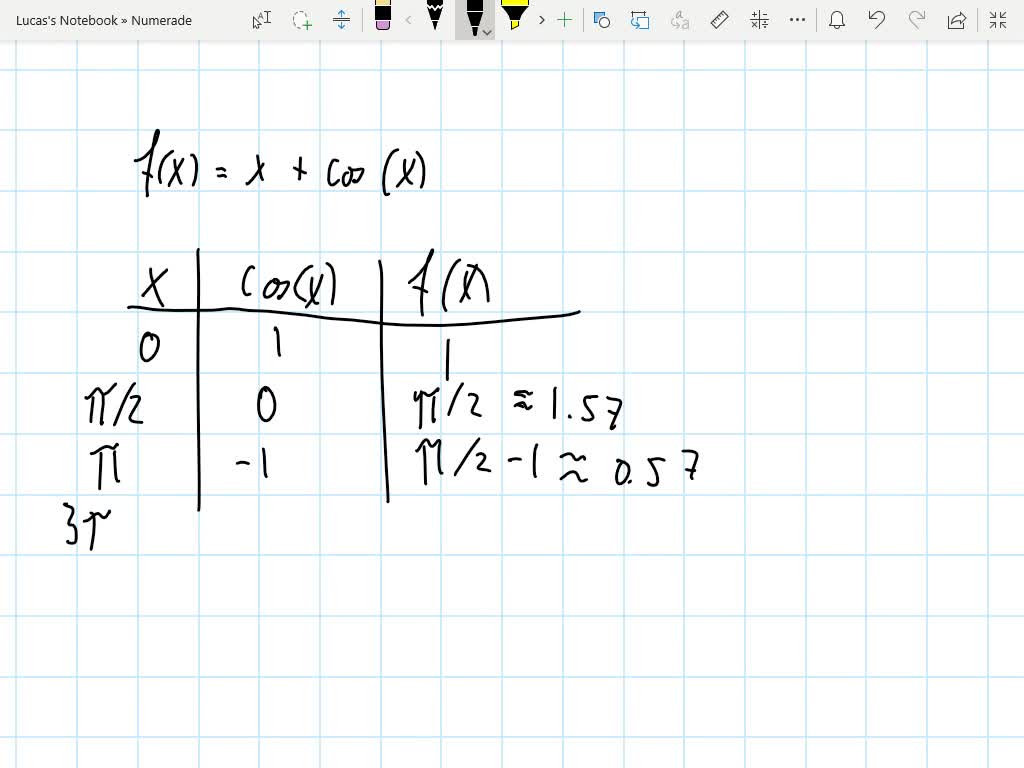 Lucas's Notebook » Numerade
f(x) = x + cos (x)
x cos(x) f(x)
0 1 1
π/2 0 π/2 ≈ 1.57
π -1 π/2 -1 ≈ 0.57
3π